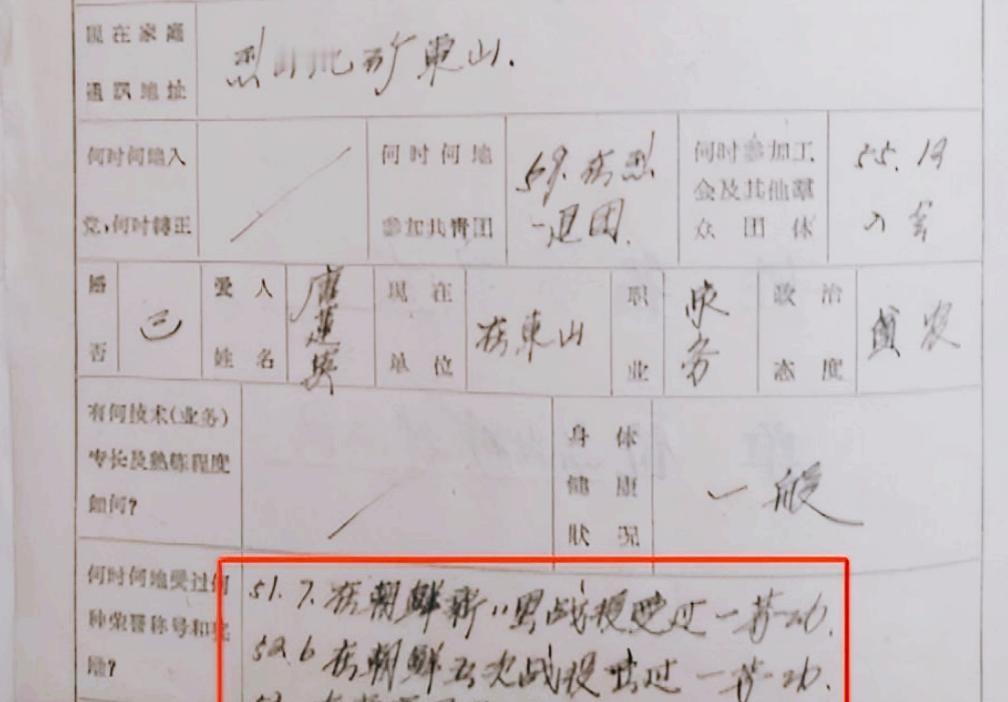 现在家庭
通訊地址
烈山北矿東山.
何时何地入
党,何时轉正
何时何地
参加共青团
59.在烈
退团.
何时参加工
会及其他羣
众团体
55.12
入会
婚
否
已
爱人
姓名
唐莲英
现在
单位
在東山
职
业
家务
政治
态度
贫农
有何技术(业务)
专长及熟练程度
如何?
身体
健康
狀况
一般
何时何地受过何
种荣誉称号和奖
励?
51.7.在朝鮮新
战役受过一等功.
52.6在朝鮮五次战役出过一等功.